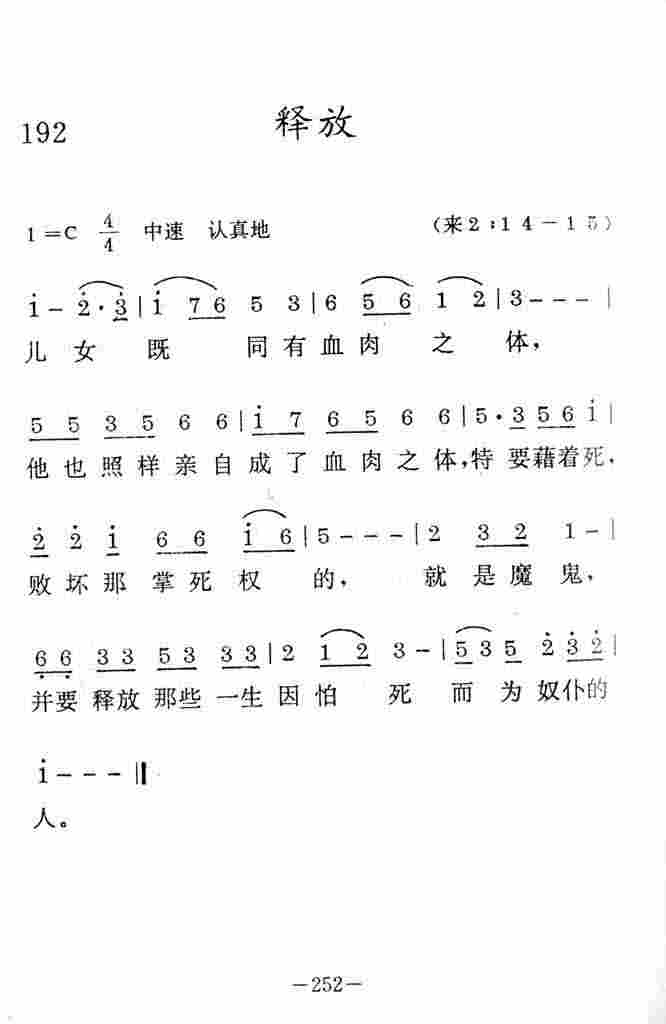 192 释放
1=C 4/4 中速 认真地 (来2:14-15)
i̇ - 2̇·3̇ | i̇ 7 6 5 3 | 6 5 6 1 2 | 3 - - - |
儿女既 同有血肉 之 体,
5 5 3 5 6 6 | i̇ 7 6 5 6 6 | 5·3 5 6 i̇ |
他也照样亲自成了血肉之体,特要藉着死,
2̇ 2̇ i̇ 6 6 i̇ 6 | 5 - - - | 2 3 2 1 - |
败坏那掌死权 的, 就是魔鬼,
6̣ 6̣ 3 3 5 3 3 3 | 2 1 2 3 - | 5 3 5 2̇ 3̇ 2̇ |
并要释放那些一生因怕 死 而 为奴仆的
i̇ - - - ‖
人。
-252-